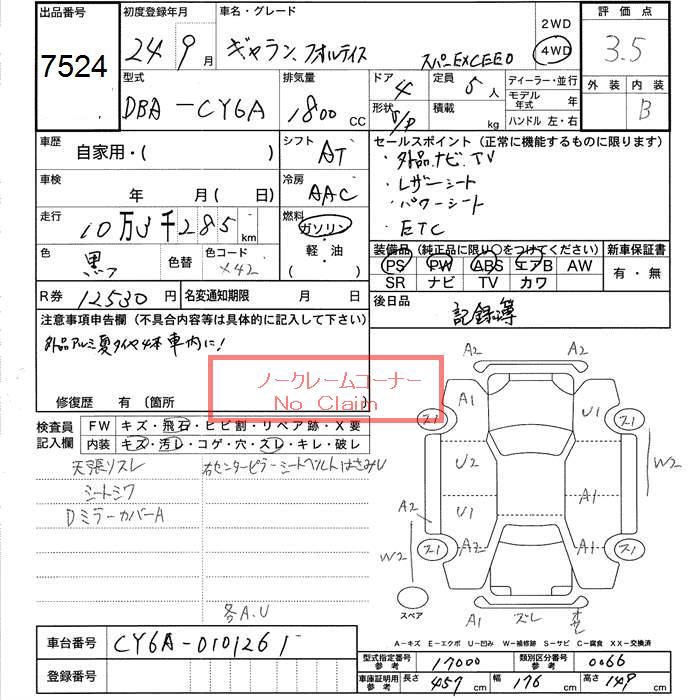 出品番号 初度登録年月 車名・グレード 2WD 評価点
7524 24 9月 ギャラン フォルティス スーパーEXCEED 4WD 3.5
型式 排気量 ドア 4 定員 5人 ディーラー・並行 外装 内装
DBA-CY6A 1800 CC 形状 積載 kg モデル年式 年 B
ハンドル 左・右
車歴 シフト セールスポイント (正常に機能するものに限ります)
自家用・( ) AT ・外品ナビ、TV
車検 冷房 ・レザーシート
年 月( 日) AAC ・パワーシート
走行 燃料 ・ETC
10万3千285km ガソリン
色 色替 色コード 軽・油 装備品 (純正品に限り○をつけてください) 新車保証書
黒 X42 ( ) PS PW ABS エアB AW 有・無
SR ナビ TV カワ
R券 12530円 名変通知期限 月 日 後日品
注意事項申告欄 (不具合内容等は具体的に記入して下さい) 記録簿
外品アルミ夏タイヤ4本車内に!
ノークレームコーナー
No Claim
修復歴 有 〔箇所
検査員記入欄 FW キズ・飛石・ヒビ割・リペア跡・X要
内装 キズ・汚レ・コゲ・穴・スレ・キレ・破レ
天張リスレ 右センターピラーシートベルトはさみU
シートシワ
DミラーカバーA
各A.U
A2 A2
A1 U1
ス1 ス1
U2 W2
A2 U1 A1
ス1 A2 A1 ス1
W2
スペア
A1 スレ
A-キズ E-エクボ U-凹み W-補修跡 S-サビ C-腐食 XX-交換済
車台番号 CY6A-0101261
登録番号
型式指定番号参考 17000 類別区分番号参考 0066
車庫証明用参考 長さ 457cm 幅 176cm 高さ 149cm